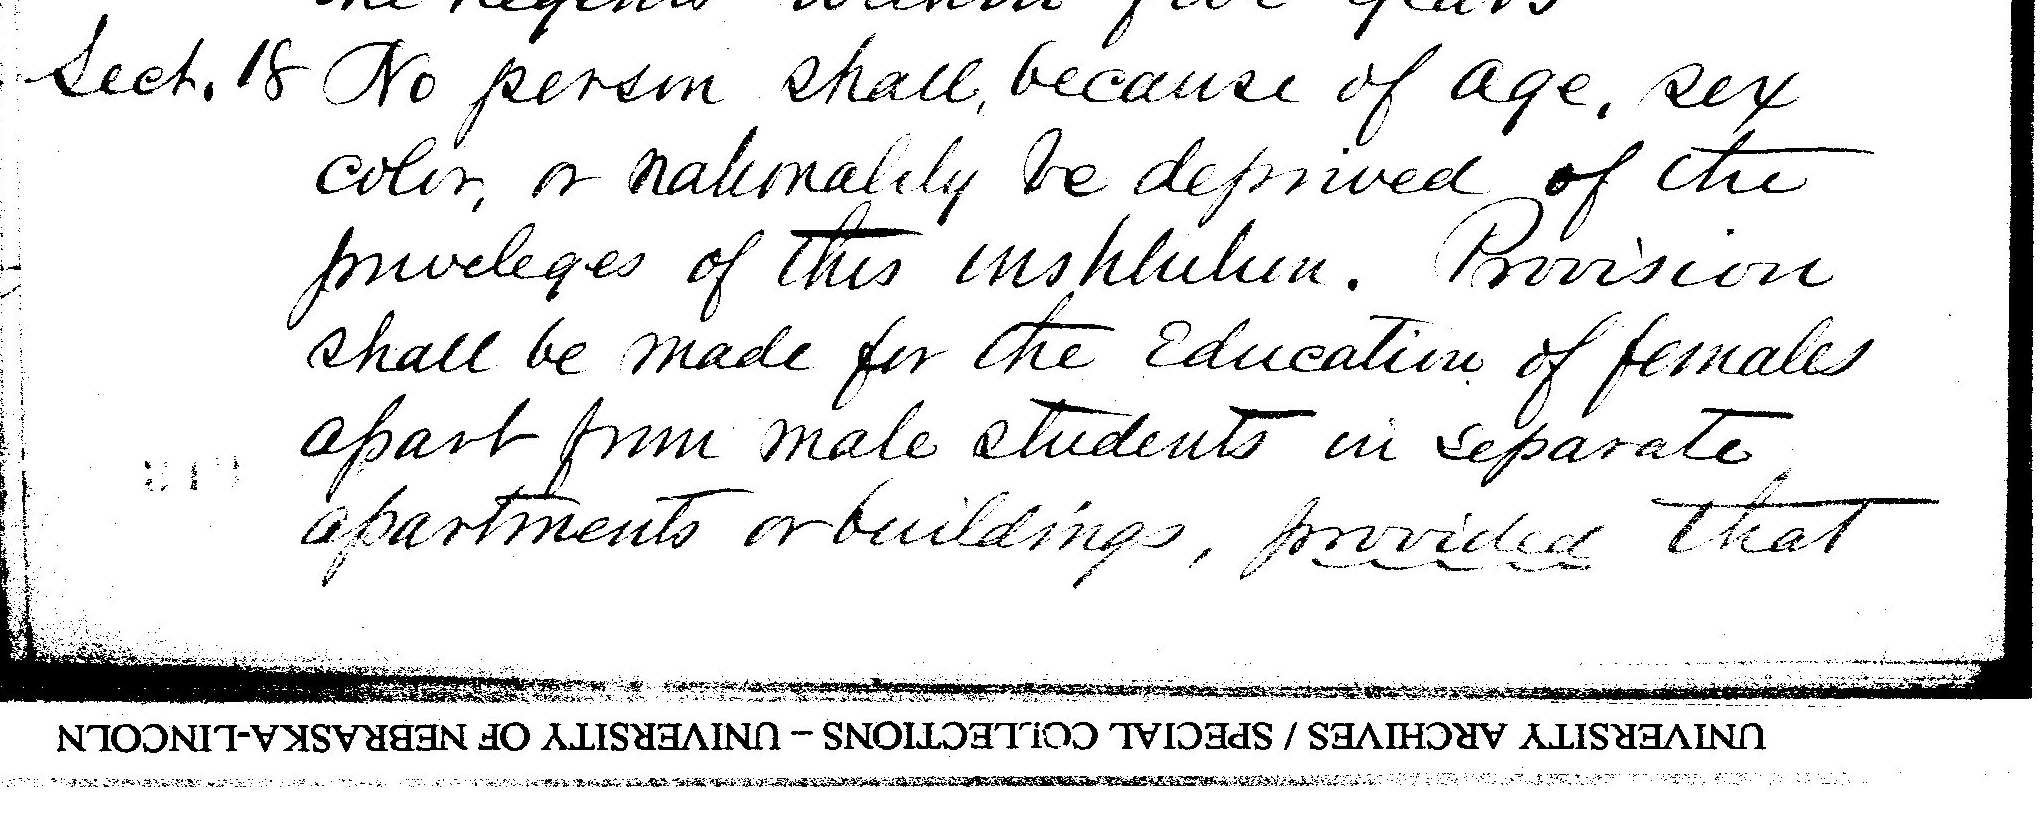 the Regents within five years
Sect. 18 No person shall, because of age, sex
color, or nationality be deprived of the
priveleges of this institution. Provision
shall be made for the Education of females
apart from male students in separate
apartments or buildings, provided that
UNIVERSITY ARCHIVES / SPECIAL COLLECTIONS – UNIVERSITY OF NEBRASKA-LINCOLN